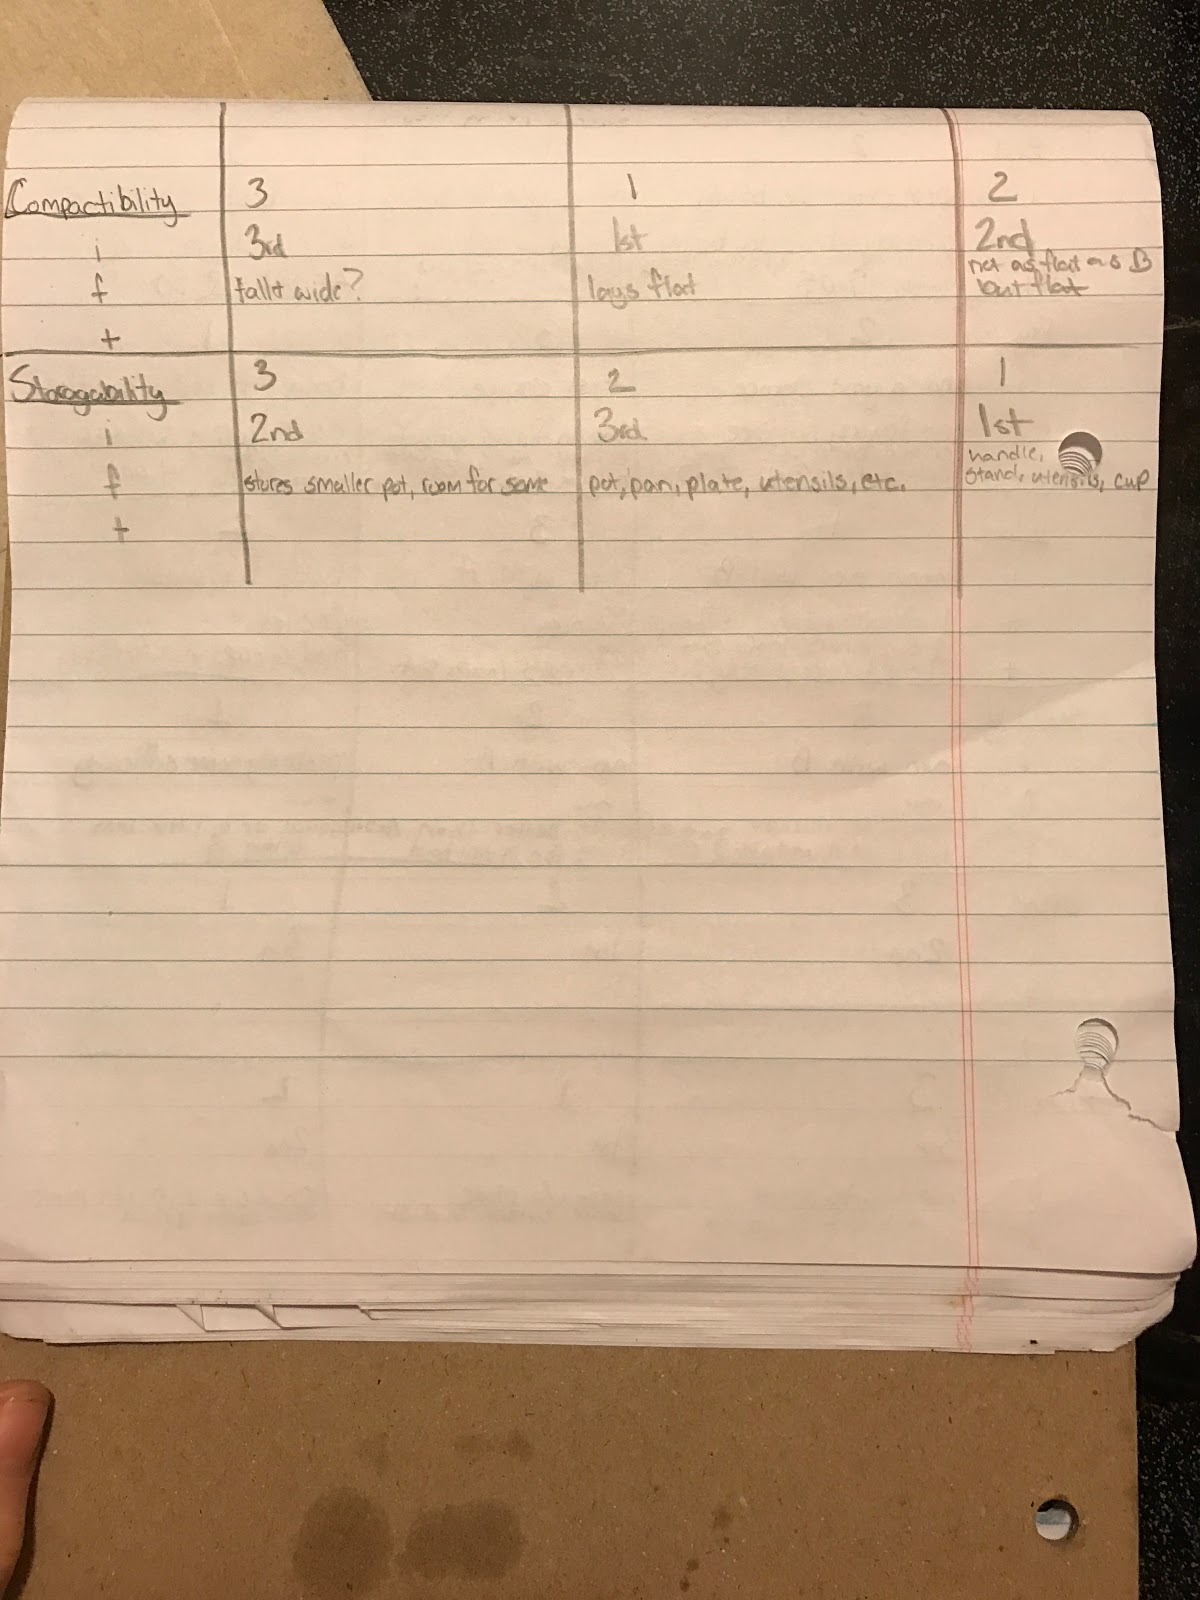 Compactibility 3 1 2
i 3rd 1st 2nd
not as flat as B
f tall + wide? lays flat but flat
+
Storagability 3 2 1
i 2nd 3rd 1st
handle,
f stores smaller pot, room for some pot, pan, plate, utensils, etc. stand, utensils, cup
+